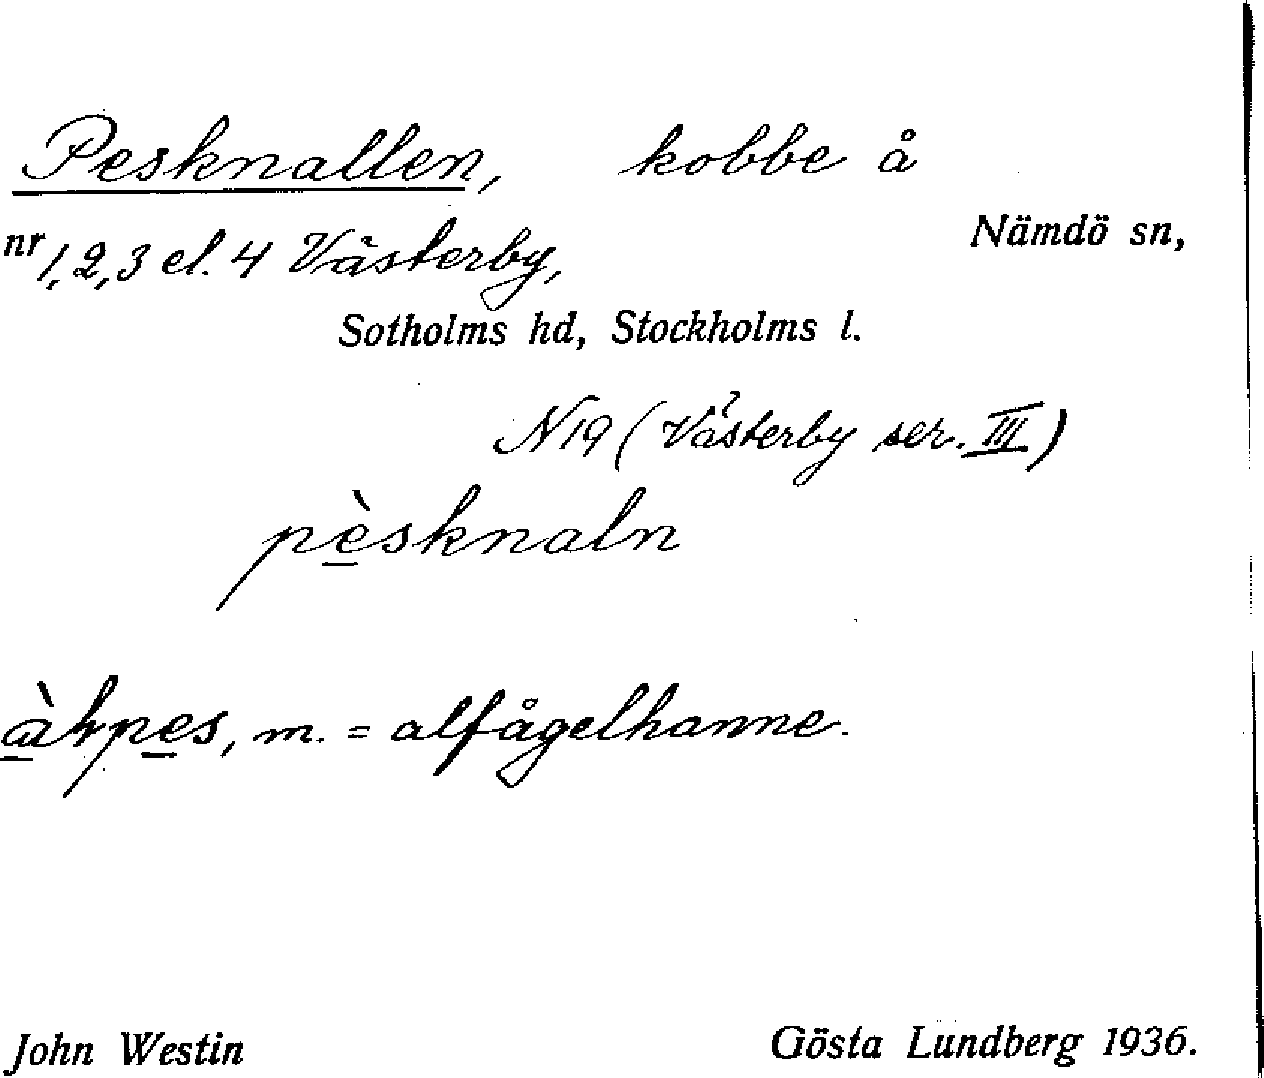 Pesknallen, kobbe å
nr 1, 2, 3 el. 4 Västerby, Nämdö sn,
Sotholms hd, Stockholms l.
N 19 (Västerby ser. III)
pèsknaln
m. = alfågelhanne.
John Westin Gösta Lundberg 1936.